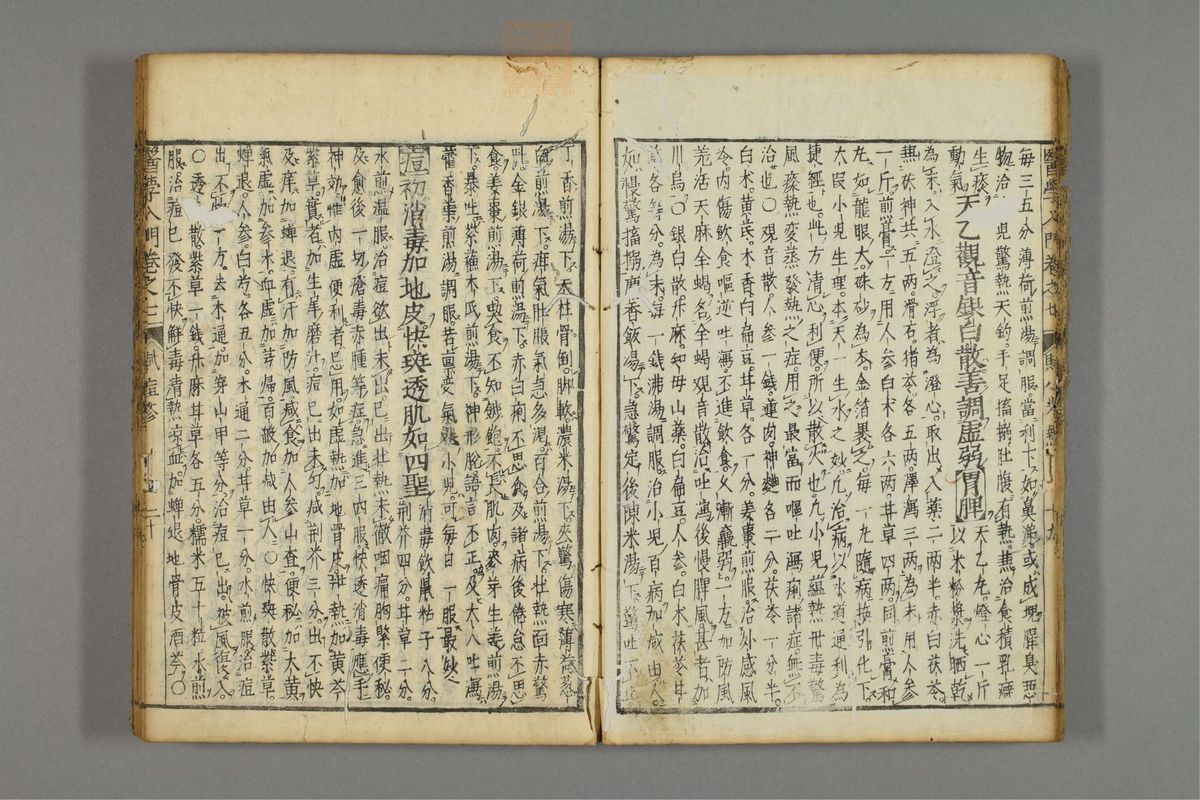 每三五分薄荷煎湯調服當利下如魚涎或成塊腥臭惡
物治 兒驚熱天釣手足搐搦肚腹有熱兼治食積乳癖
生痰
動氣天乙觀音銀白散善調虛弱胃脾天乙丸燈心一斤以米粉漿洗晒乾
為末入水澄之浮者為 澄心取出入藥二兩半赤白茯苓
茯神共五兩滑石猪苓各五兩澤瀉三兩為末用人參
一斤煎膏一方用人參白术各六兩甘草四兩同煎膏和
丸如龍眼大硃砂為衣金箔裹之每一丸隨病換引化下
大段小兒生理本天一生水之妙凡治病以水道通利為
捷徑也此方清心利便所以散火也凡小兒蘊熱丹毒驚
風痰熱變蒸發熱之症用之最當而嘔吐瀉痢諸症無不
治也○觀音散人參一錢蓮肉神麯各二分茯苓一分半
白术黃芪木香白扁豆甘草各一分姜棗煎服治外感風
冷內傷飲食嘔逆吐瀉不進飲食久漸羸弱一方加防風
羗活天麻全蝎名全蝎觀音散治吐瀉後慢脾風甚者加
川烏○銀白散升麻知母山藥白扁豆人參白术茯苓甘
草各等分為末每一錢沸湯調服治小兒百病加減由人
如慢驚搐搦麝香飯湯下急驚定後陳米湯下驚吐下
丁香煎湯下天柱骨倒脚軟濃米湯下夾驚傷寒薄荷葱
白煎湯下疳氣肚脹氣急多渴百合煎湯下壯熱面赤驚
叫金銀薄荷煎湯下赤白痢不思食及諸病後倦怠不思
食姜棗煎湯下喫食不知饑飽不長肌肉麥芽生姜煎湯
下暴吐 紫蘇木瓜煎湯下神形脫語言不正及大人吐瀉
藿香葉煎湯調服若稟受氣 小兒可每日一服最妙
痘初消毒加地皮快斑透肌如四聖消毒飲鼠粘子八分荆芥四分甘草二分
水煎溫服治痘欲出未出已出壯熱未徹咽痛胸緊便秘
及愈後一切瘡毒赤腫等症急進三四服快透消毒應手
神效惟內虛便利者忌用如虛熱加地骨皮 熱加黃芩
紫草實者加生犀磨汁痘已出未勻減荆芥三分出不快
及痒加蟬退有汗加防風減食加人參山查便秘加大黃
氣虛加參术血虛加芎歸百般加減由人○快斑散紫草
蟬退人參白芍各五分木通二分甘草一分水煎服治痘
出不 一方去木通加穿山甲等分治痘已出被風復入
○透 散紫草一錢升麻甘草各五分糯米五十粒水煎
服治痘已發不快解毒清熱涼血加蟬退地骨皮酒芩○
醫學入門卷之七
醫學入門卷之